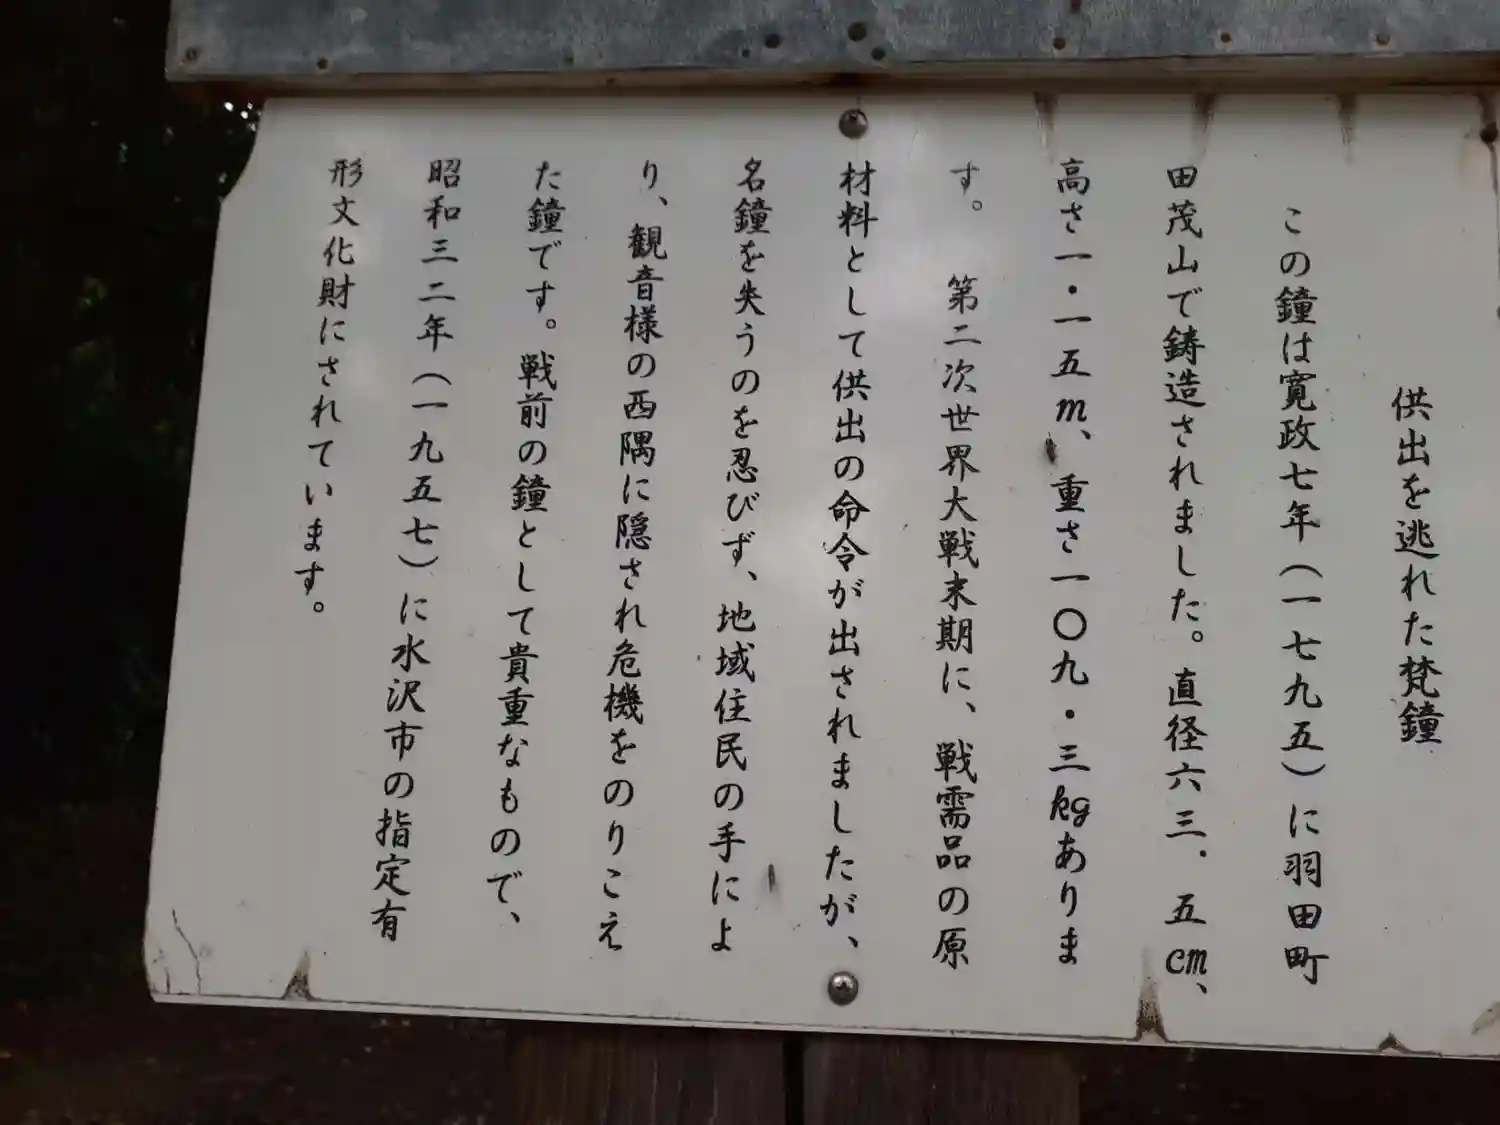 供出を逃れた梵鐘
この鐘は寛政七年（一七九五）に羽田町
田茂山で鋳造されました。直径六三．五cm、
高さ一・一五m、重さ一〇九・三kgありま
す。　第二次世界大戦末期に、戦需品の原
材料として供出の命令が出されましたが、
名鐘を失うのを忍びず、地域住民の手によ
り、観音様の西隅に隠され危機をのりこえ
た鐘です。戦前の鐘として貴重なもので、
昭和三二年（一九五七）に水沢市の指定有
形文化財にされています。